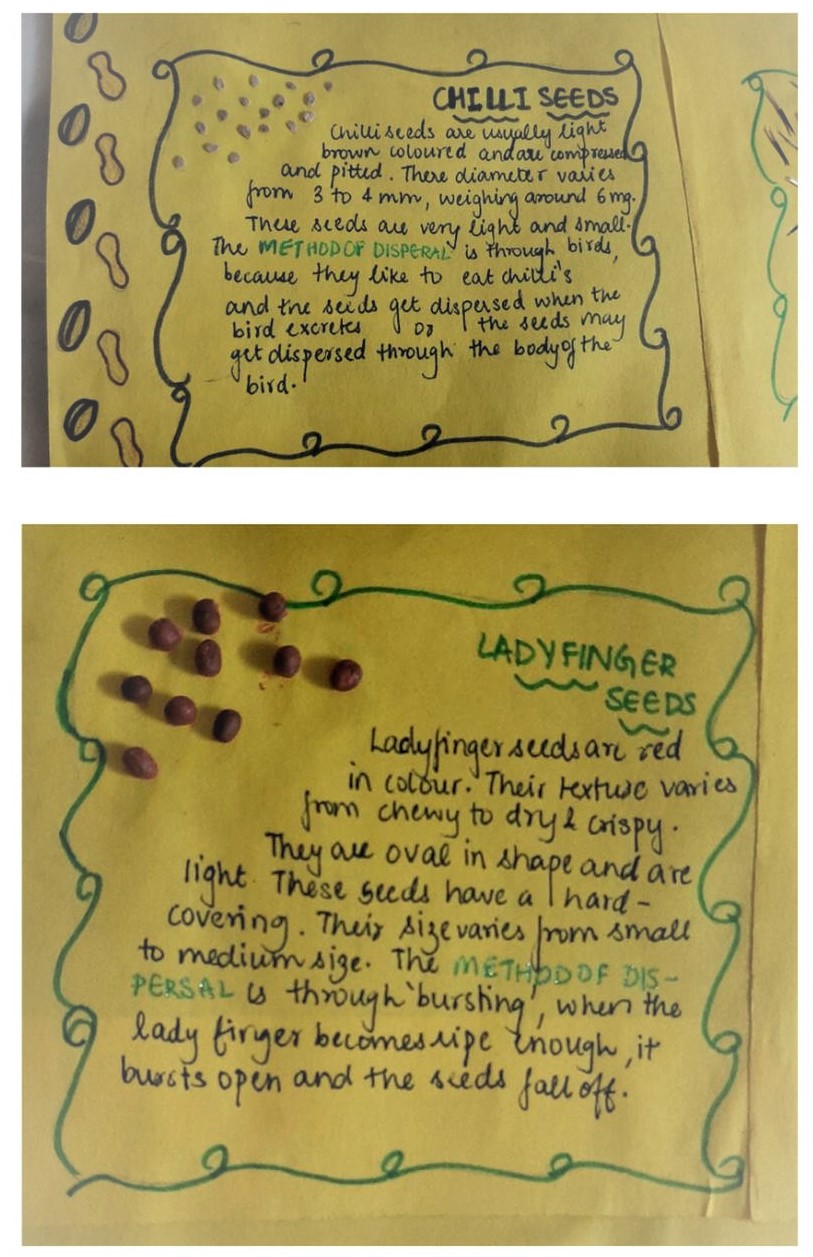 CHILLI SEEDS
Chilli seeds are usually light
brown coloured and are compressed
and pitted. There diameter varies
from 3 to 4 mm, weighing around 6 mg.
These seeds are very light and small.
The METHOD OF DISPERAL is through birds,
because they like to eat chilli's
and the seeds get dispersed when the
bird excretes or the seeds may
get dispersed through the body of the
bird.
LADYFINGER
SEEDS
Ladyfinger seeds are red
in colour. Their texture varies
from chewy to dry & crispy.
They are oval in shape and are
light. These seeds have a hard-
covering. Their size varies from small
to medium size. The METHOD OF DIS-
PERSAL is through 'bursting', when the
lady finger becomes ripe enough, it
bursts open and the seeds fall off.